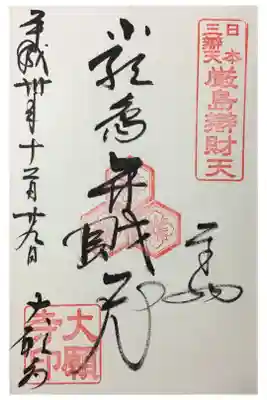 日本
三辨天
厳島辨財天
奉拝
厳島弁財天
平成卅年十二月廿九日
大願寺
大願
寺印